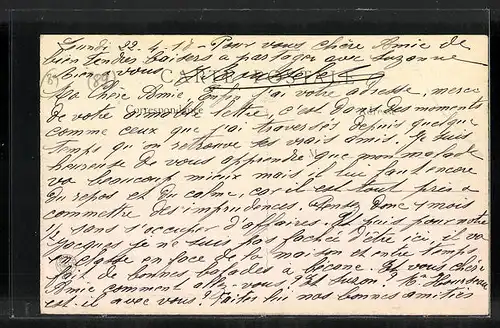 Lundi 22-4-18 - Pour vous chère Amie de
bien tendres baisers à partager avec Suzanne
bien vous
(8) (89) CARTE POSTALE
Ma Chère Amie Enfin j'ai votre adresse, merci
Correspondance
de votre aimable lettre, c'est dans des moments
comme ceux que j'ai traversés depuis quelque
temps qu'on retrouve ses vrais amis. Je suis
heureuse de vous apprendre que mon malade
va beaucoup mieux mais il lui faut encore
du repos et du calme, car il est tout prêt à
commettre des imprudences. Pensez donc 1 mois
½ sans s'occuper d'affaires. Et puis pour notre
Jacques je ne suis pas fachée d'être ici, il va
en classe en face de la maison et entre temps
fait de bonnes balades à bécane. Et vous chère
Amie comment allez-vous? Et Suzon? Mr
est-il avec vous? Faites lui nos bonnes amitiés